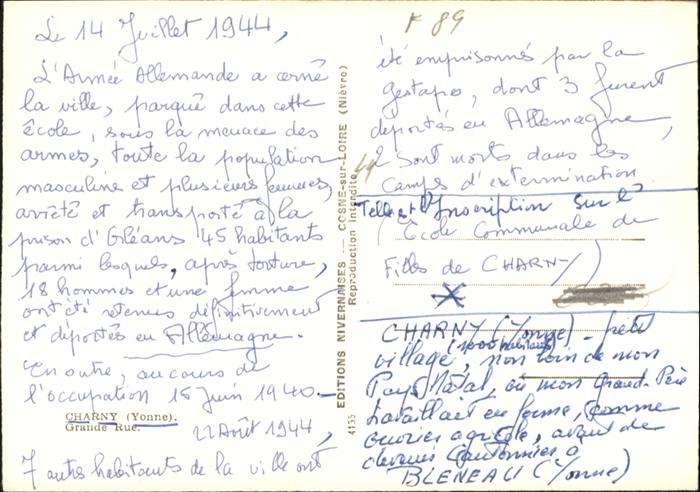 Le 14 Juillet 1944,
L'Armée Allemande a cerné
la ville, parqué dans cette
école, sous la menace des
armes, toute la population
masculine et plusieurs femmes,
arrêté et transporté à la
prison d'Orléans 45 habitants
parmi lesquels, après torture,
18 hommes et une femme
ont été retenus définitivement
et déportés en Allemagne.
En outre, au cours de
l'occupation 15 juin 1940 -
CHARNY (Yonne).
Grande Rue.
22 Août 1944,
7 autres habitants de la ville ont
EDITIONS NIVERNAISES - COSNE-sur-LOIRE (Nièvre)
Reproduction interdite
4155
F 89
été emprisonnés par la
gestapo, dont 3 furent
déportés en Allemagne,
2 sont morts dans les
camps d'extermination
Telle est l'Inscription sur l'
(École Communale de
Filles de CHARNY)
CHARNY (Yonne) - petit
village (1900 habitants), non loin de mon
Pays Natal, où mon Grand-Père
travaillait en ferme, comme
ouvrier agricole, avant de
devenir Cantonnier à
BLENEAU (Yonne)